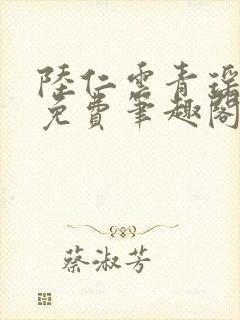 陸仁雲青瑤
免費筆趣閣
蔡淑芳